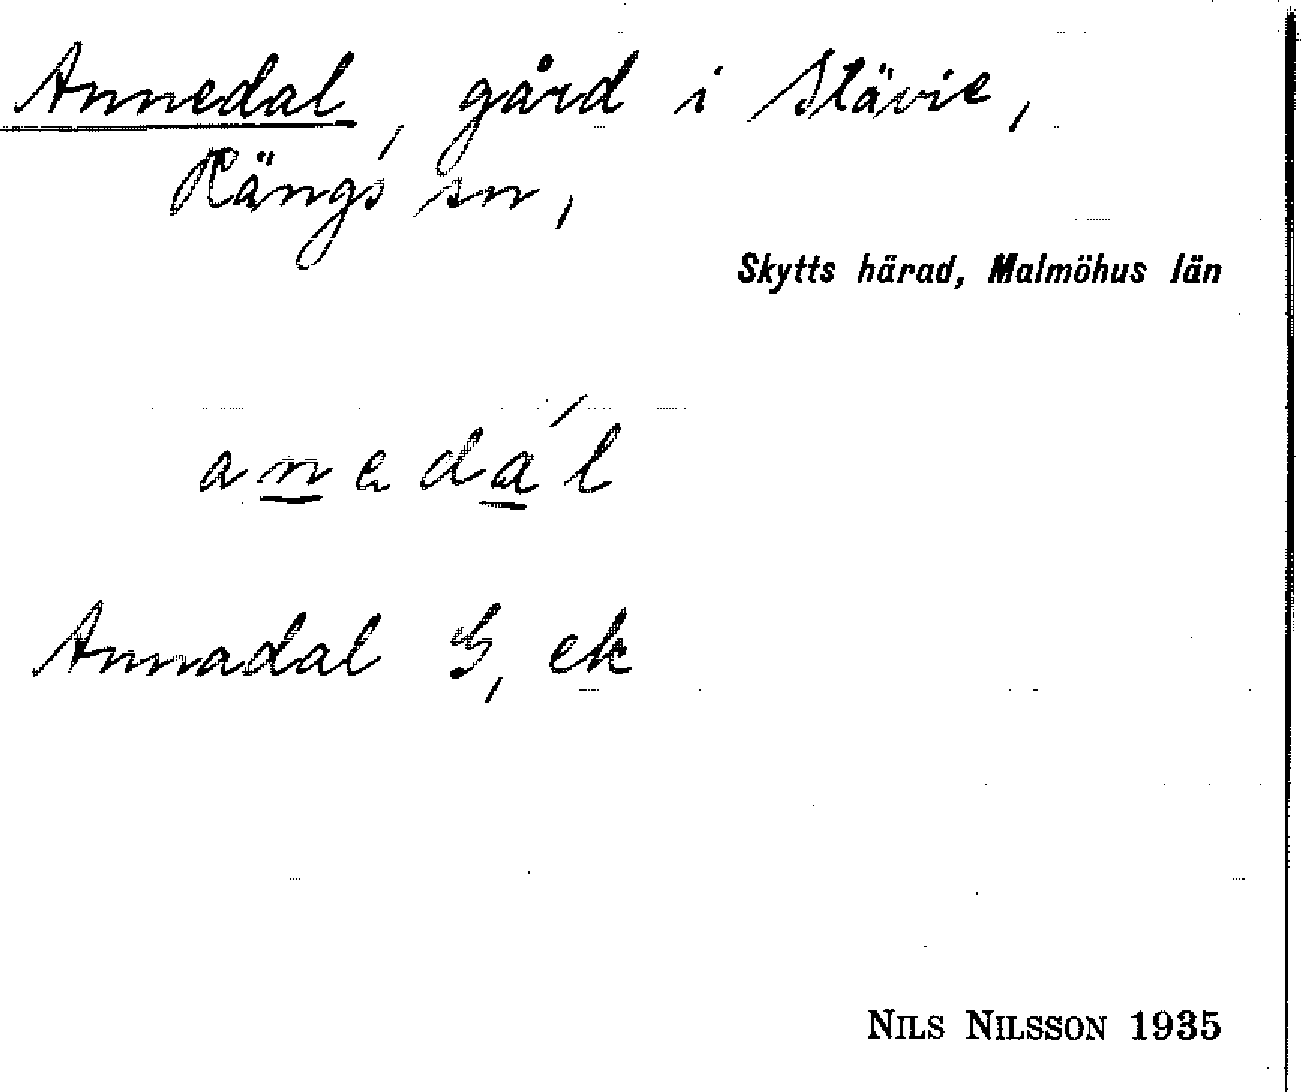 Annedal, gård i Stävie,
Rängs sn,
Skytts härad, Malmöhus län
anedál
Annadal G, ek
NILS NILSSON 1935